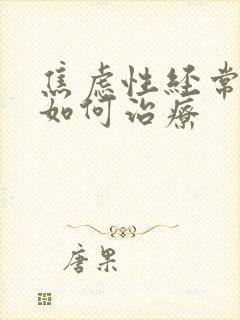 焦虑性经常
如何治療
唐果